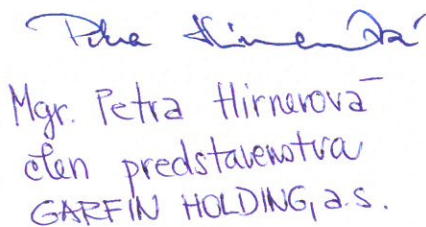 Petra Hirnerová
Mgr. Petra Hirnerová
člen predstavenstva
GARFIN HOLDING, a.s.